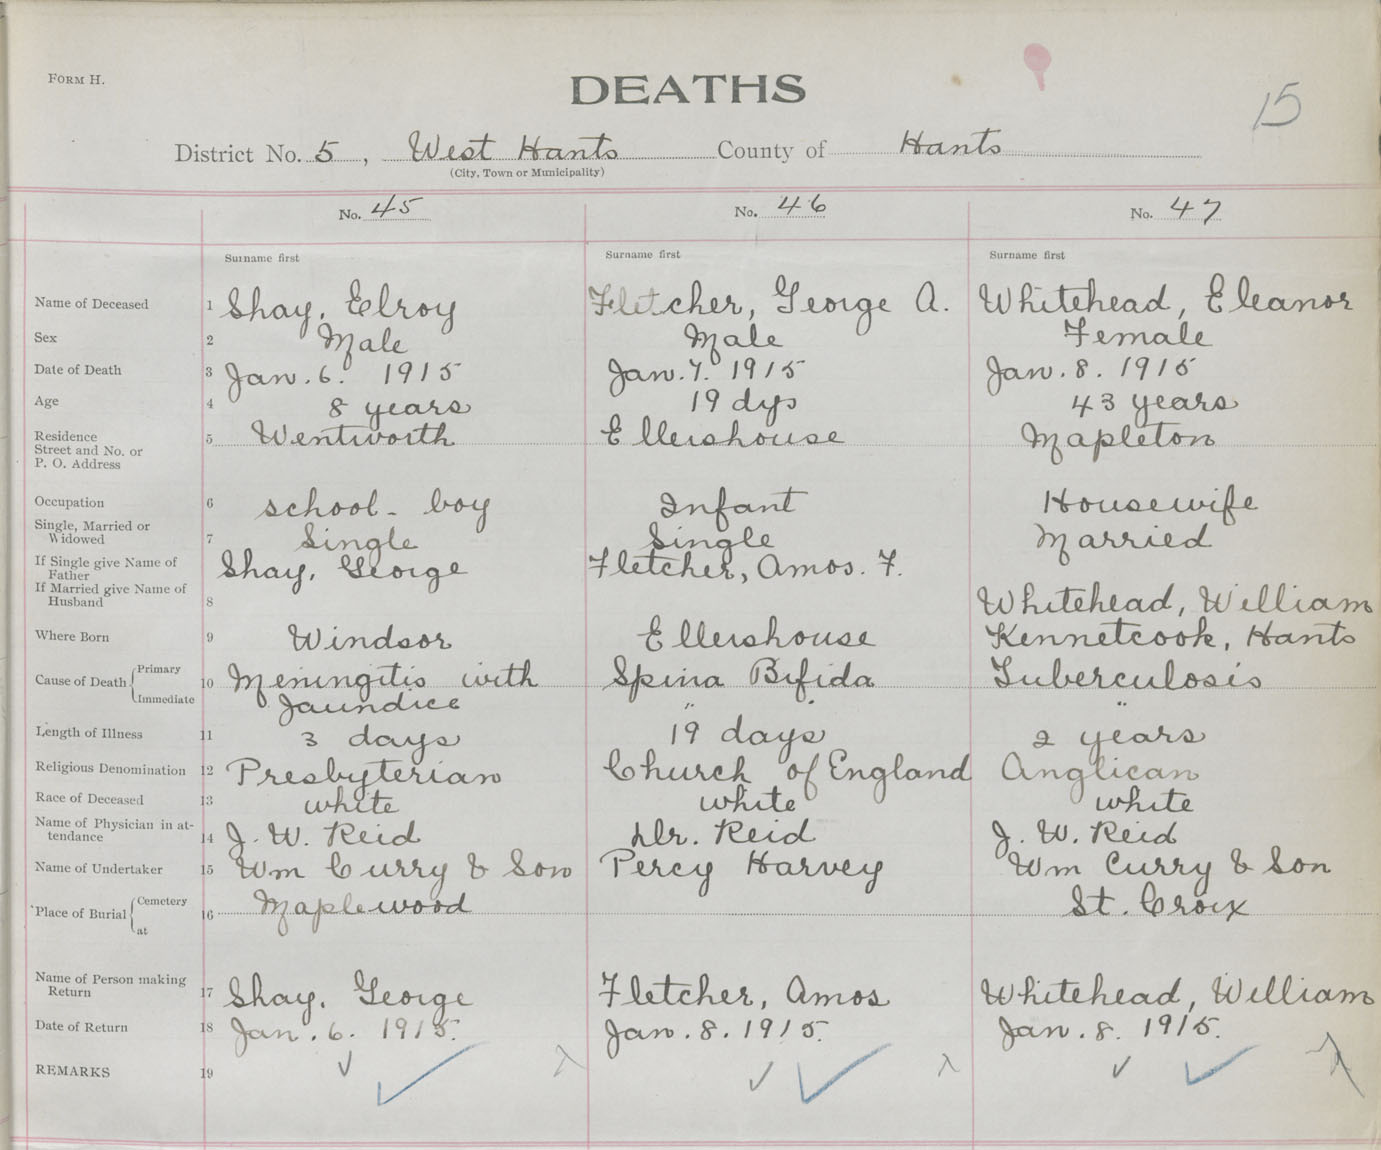 FORM H.
DEATHS
15
District No. 5, West Hants County of Hants
(City, Town or Municipality)
No. 45 No. 46 No. 47
Surname first Surname first Surname first
Name of Deceased 1 Shay, Elroy Fletcher, George A. Whitehead, Eleanor
Sex 2 Male Male Female
Date of Death 3 Jan. 6. 1915 Jan. 7. 1915 Jan. 8. 1915
Age 4 8 years 19 dys 43 years
Residence 5 Wentworth Ellershouse Mapleton
Street and No. or
P. O. Address
Occupation 6 school-boy Infant Housewife
Single, Married or
Widowed 7 Single Single Married
If Single give Name of
Father Shay, George Fletcher, Amos. F.
If Married give Name of
Husband 8 Whitehead, William
Where Born 9 Windsor Ellershouse Kennetcook, Hants
Cause of Death Primary 10 Meningitis with Spina Bifida Tuberculosis
Immediate Jaundice " "
Length of Illness 11 3 days 19 days 2 years
Religious Denomination 12 Presbyterian Church of England Anglican
Race of Deceased 13 white white white
Name of Physician in at-
tendance 14 J. W. Reid Dr. Reid J. W. Reid
Name of Undertaker 15 Wm Curry & Son Percy Harvey Wm Curry & Son
Place of Burial Cemetery 16 Maplewood St. Croix
at
Name of Person making
Return 17 Shay, George Fletcher, Amos Whitehead, William
Date of Return 18 Jan. 6. 1915. Jan. 8. 1915. Jan. 8. 1915.
REMARKS 19